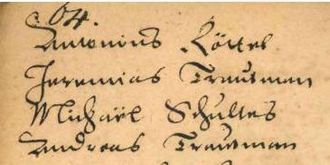 64.
Antonius Röttel
Jeremias Trautman
Michaël Schultes
Andreas Trautman